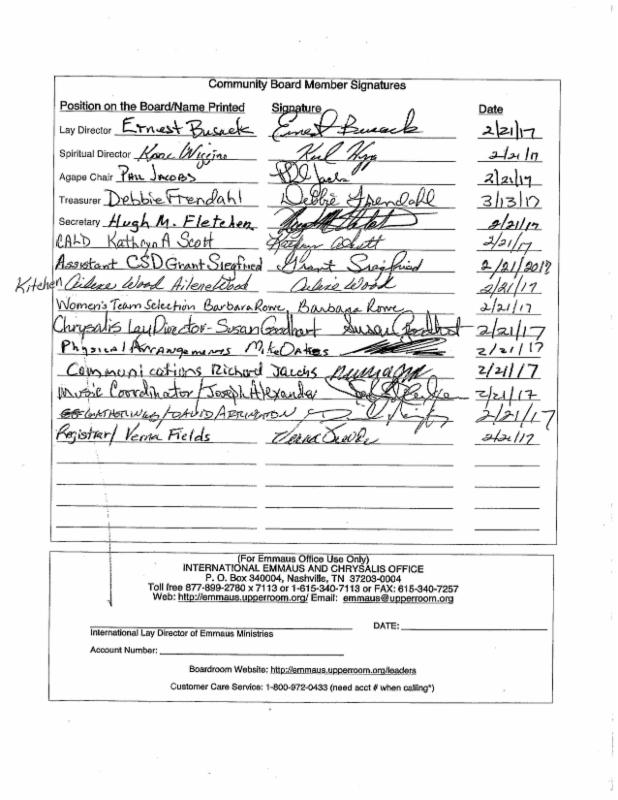 Community Board Member Signatures
Position on the Board/Name Printed Signature Date
Lay Director Ernest Busack Ernest Busack 2/21/17
Spiritual Director Wiggins 2/21/17
Agape Chair Phil Jacobs 2/21/17
Treasurer Debbie Frendahl Debbie Frendahl 3/13/17
Secretary Hugh M. Fletcher 2/21/17
CALD Kathryn A Scott Kathryn A Scott 2/21/17
Assistant CSD Grant Siegfried Grant Siegfried 2/21/2017
Kitchen Ailene Wood Ailene Wood Ailene Wood 2/21/17
Women's Team Selection Barbara Rowe Barbara Rowe 2/21/17
Chrysalis Lay Director - Susan Goodhart Susan Goodhart 2/21/17
Physical Arrangements Mike Oakes 2/21/17
Communications Richard Jacobs 2/21/17
Music Coordinator/Joseph Alexander 2/21/17
Gatherings/David Arrington 2/21/17
Registrar/ Verna Fields Verna Fields 2/21/17
(For Emmaus Office Use Only)
INTERNATIONAL EMMAUS AND CHRYSALIS OFFICE
P. O. Box 340004, Nashville, TN 37203-0004
Toll free 877-899-2780 x 7113 or 1-615-340-7113 or FAX: 615-340-7257
Web: http://emmaus.upperroom.org/ Email: emmaus@upperroom.org
DATE:
International Lay Director of Emmaus Ministries
Account Number:
Boardroom Website: http://emmaus.upperroom.org/leaders
Customer Care Service: 1-800-972-0433 (need acct # when calling*)